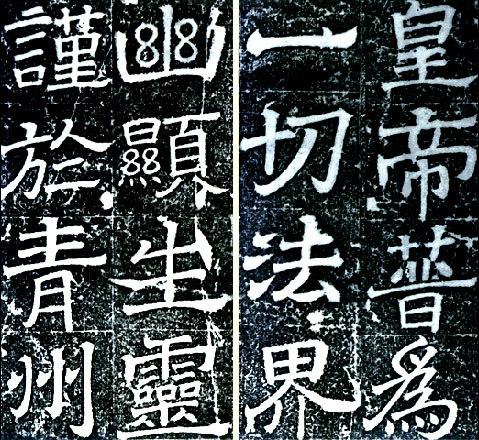 皇帝普爲
一切法界
幽顯生靈
謹於青州